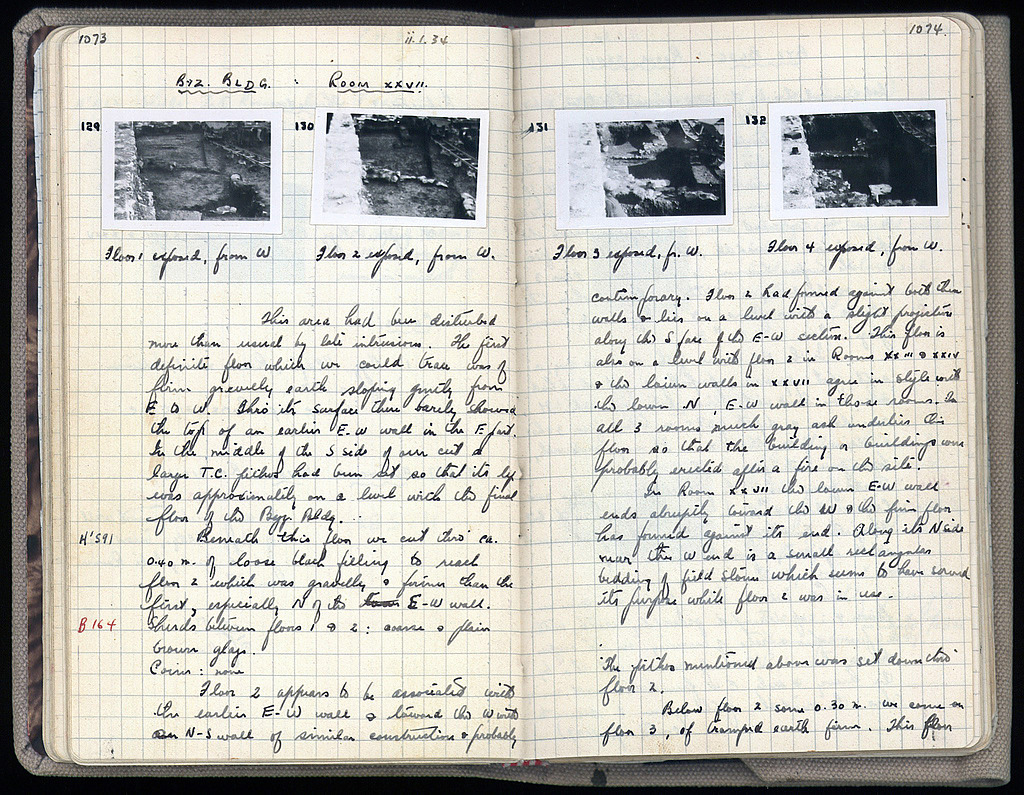 1073
ii.1.34
Byz. Bldg. : Room XXVII.
129
130
Floor 1 exposed, from W
Floor 2 exposed, from W.
This area had been disturbed
more than usual by late intrusions. The first
definite floor which we could trace was of
firm gravelly earth sloping gently from
E to W. Thro its surface there barely showed
the top of an earlier E-W wall in the E part.
In the middle of the S side of our cut a
large T.C. pithos had been set so that its lip
was approximately on a level with the final
floor of the Byz. Bldg.
H'591
Beneath this floor we cut thro ca.
0.40 m. of loose black filling to reach
floor 2 which was gravelly & firmer than the
first, especially N of the E-W wall.
B 164
Sherds between floors 1 & 2 : coarse & plain
brown glaze.
Coins : none
Floor 2 appears to be associated with
the earlier E-W wall & toward the W with
an N-S wall of similar construction & probably
1074.
131
132
Floor 3 exposed, fr. W.
Floor 4 exposed, from W.
contemporary. Floor 2 had formed against both these
walls & lies on a level with a slight projection
along the S face of the E-W section. This floor is
also on a level with floor 2 in Rooms XXIII & XXIV
& the lower walls in XXVII agree in style with
the lower N, E-W wall in those rooms. In
all 3 rooms much gray ash underlies this
floor so that the building or buildings were
probably erected after a fire on the site.
In Room XXVII the lower E-W wall
ends abruptly toward the W & the firm floor
has formed against its end. Along its N side
near the W end is a small rectangular
bedding of field stones which seems to have served
its purpose while floor 2 was in use.
The pithos mentioned above was set down thro
floor 2.
Below floor 2 some 0.30 m. we came on
floor 3, of tramped earth firm. This floor